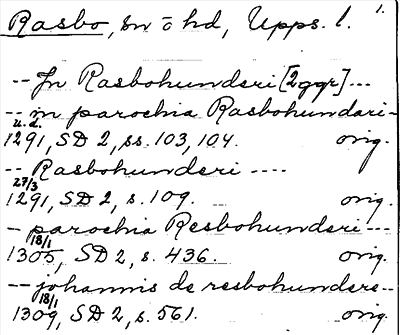 Rasbo, sn o hd, Upps. l. 1.
-- In Rasbohunderi [2 ggr] ---
-- in parochia Rasbohundari-
u. d.
1291, SD 2, ss. 103, 104. orig.
-- Rasbohunderi ----
27/3
1291, SD 2, s. 109. orig.
- parochia Resbohunderi ---
18/1
1305, SD 2, s. 436. orig.
-- johannis de resbohundere--
18/1
1309, SD 2, s. 561. orig.